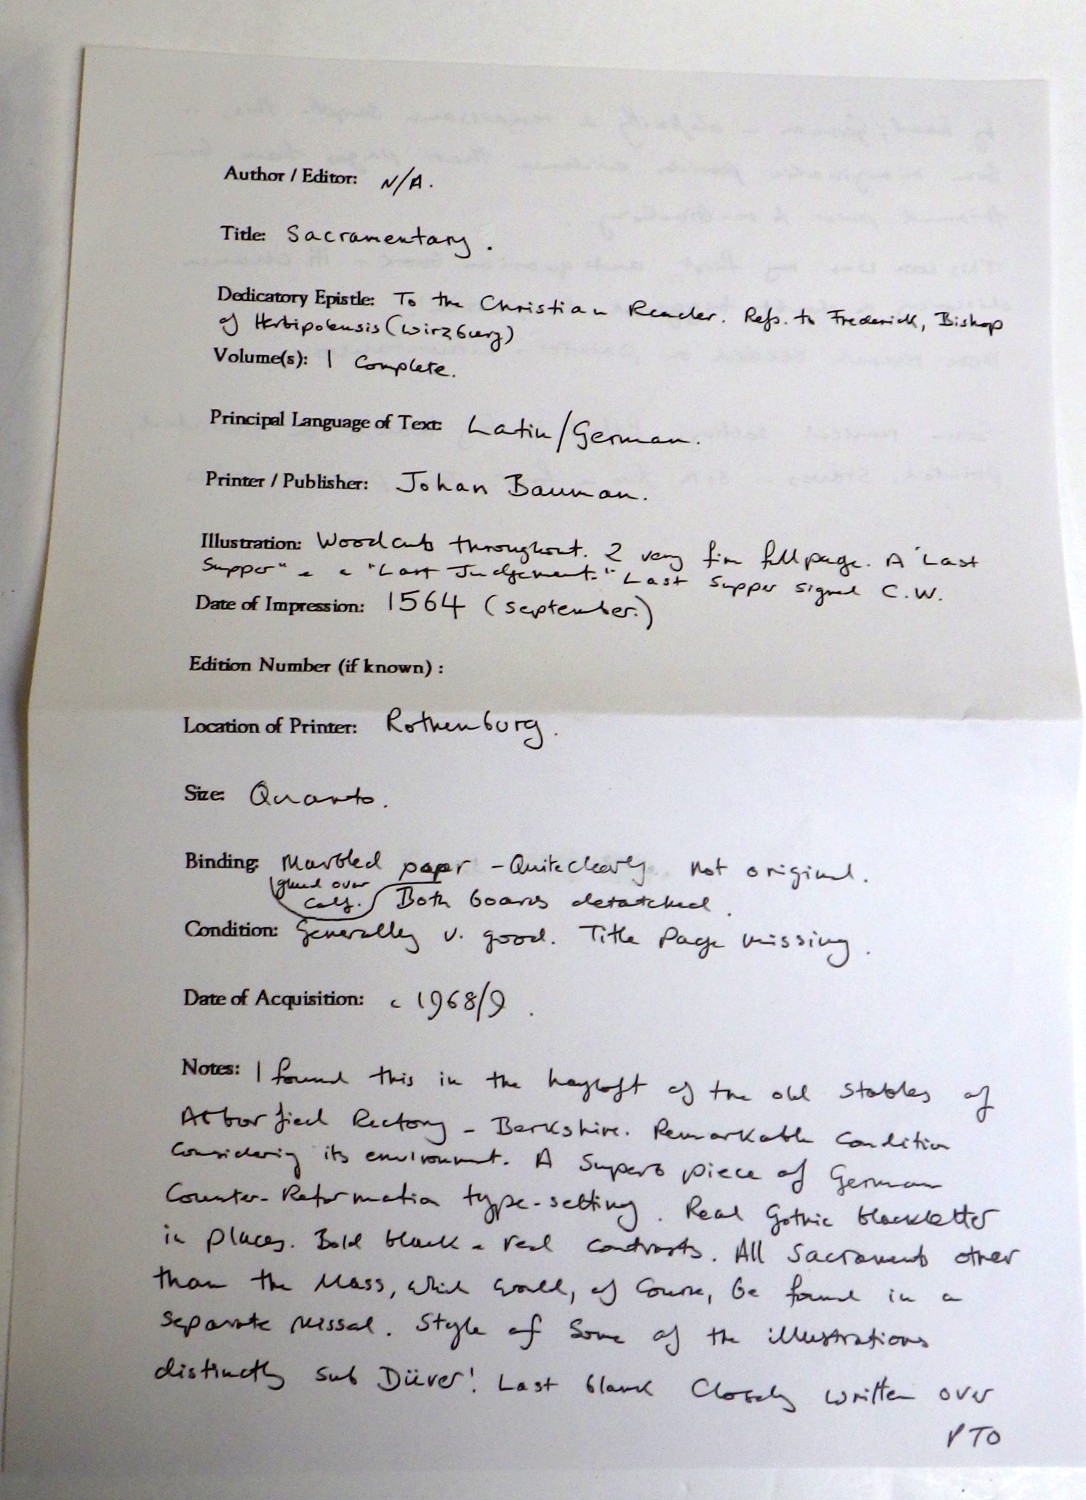 Author / Editor: N/A.
Title: Sacramentary.
Dedicatory Epistle: To the Christian Reader. Refs. to Frederick, Bishop
of Herbipolensis (Wirzburg)
Volume(s): 1 Complete.
Principal Language of Text: Latin/German.
Printer / Publisher: Johan Bauman.
Illustration: Woodcuts throughout. 2 very fine full page. A "Last
Supper" & a "Last Judgement." Last Supper signed C.W.
Date of Impression: 1564 (September.)
Edition Number (if known) :
Location of Printer: Rothenburg.
Size: Quarto.
Binding: Marbled paper - Quite clearly not original.
glued over
calf. Both boards detatched.
Condition: Generally v. good. Title Page missing.
Date of Acquisition: c 1968/9.
Notes: I found this in the hayloft of the old stables of
Arborfield Rectory - Berkshire. Remarkable condition
considering its environment. A superb piece of German
Counter-Reformation type-setting. Real Gothic blackletter
in places. Bold black & red contrasts. All Sacraments other
than the Mass, which would, of course, be found in a
separate Missal. Style of some of the illustrations
distinctly sub Dürer! Last blank closely written over
PTO